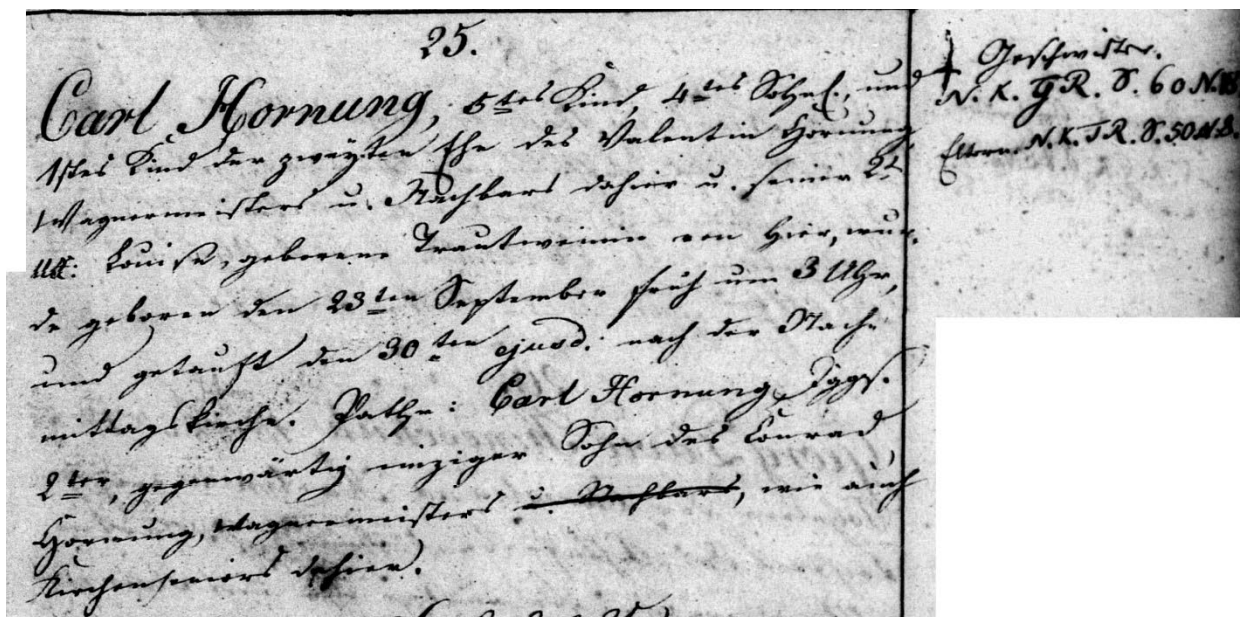 25.
Carl Hornung, 5tes Kind, 4tes Söhnl., und
1stes Kind der zweyten Ehe des Valentin Hornung,
Wagnermeisters u. Nachbars dahier u. seiner 2t.
Ux: Louise, geborene Trautweinin von hier, wur-
de geboren den 23ten September früh um 3 Uhr,
und getauft den 30ten ejusd. nach der Nach-
mittagskirche. Pathe: Carl Hornung,
2ter, gegenwärtig einziger Sohn des Conrad
Hornung, Wagnermeisters u. Nachbars, wie auch
Kirchenseniors dahier.
† Geschwister.
N. K. G R. S. 60 N.
Eltern N. K. T R. S. 50 N.